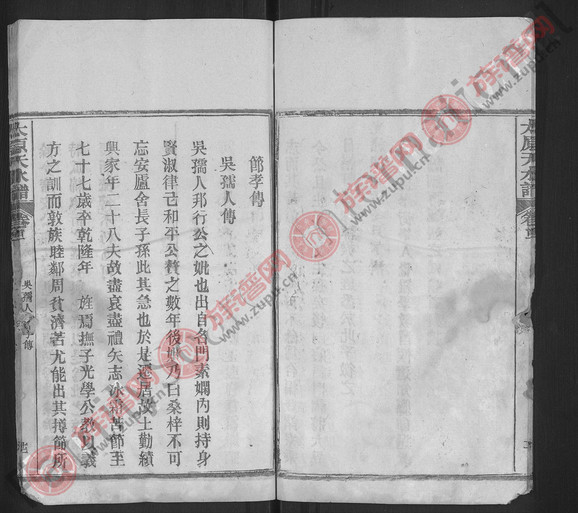 節孝傳
吳孺人傳
吳孺人邦行公之妣也出自名門素嫻內則持身
賢淑律己和平公贅之數年後孺乃曰桑梓不可
忘安廬舍長子孫此其急也於是還居故土勤績
興家年二十八夫故盡哀盡禮矢志冰霜苦節至
七十七歲卒乾隆年 旌焉撫子光學公教以義
方之訓而敦族睦鄰周貧濟苦尤能出其撙節所
太原天水譜
吳孺人 傳
太原天水譜
族谱网
www.zupu.cn